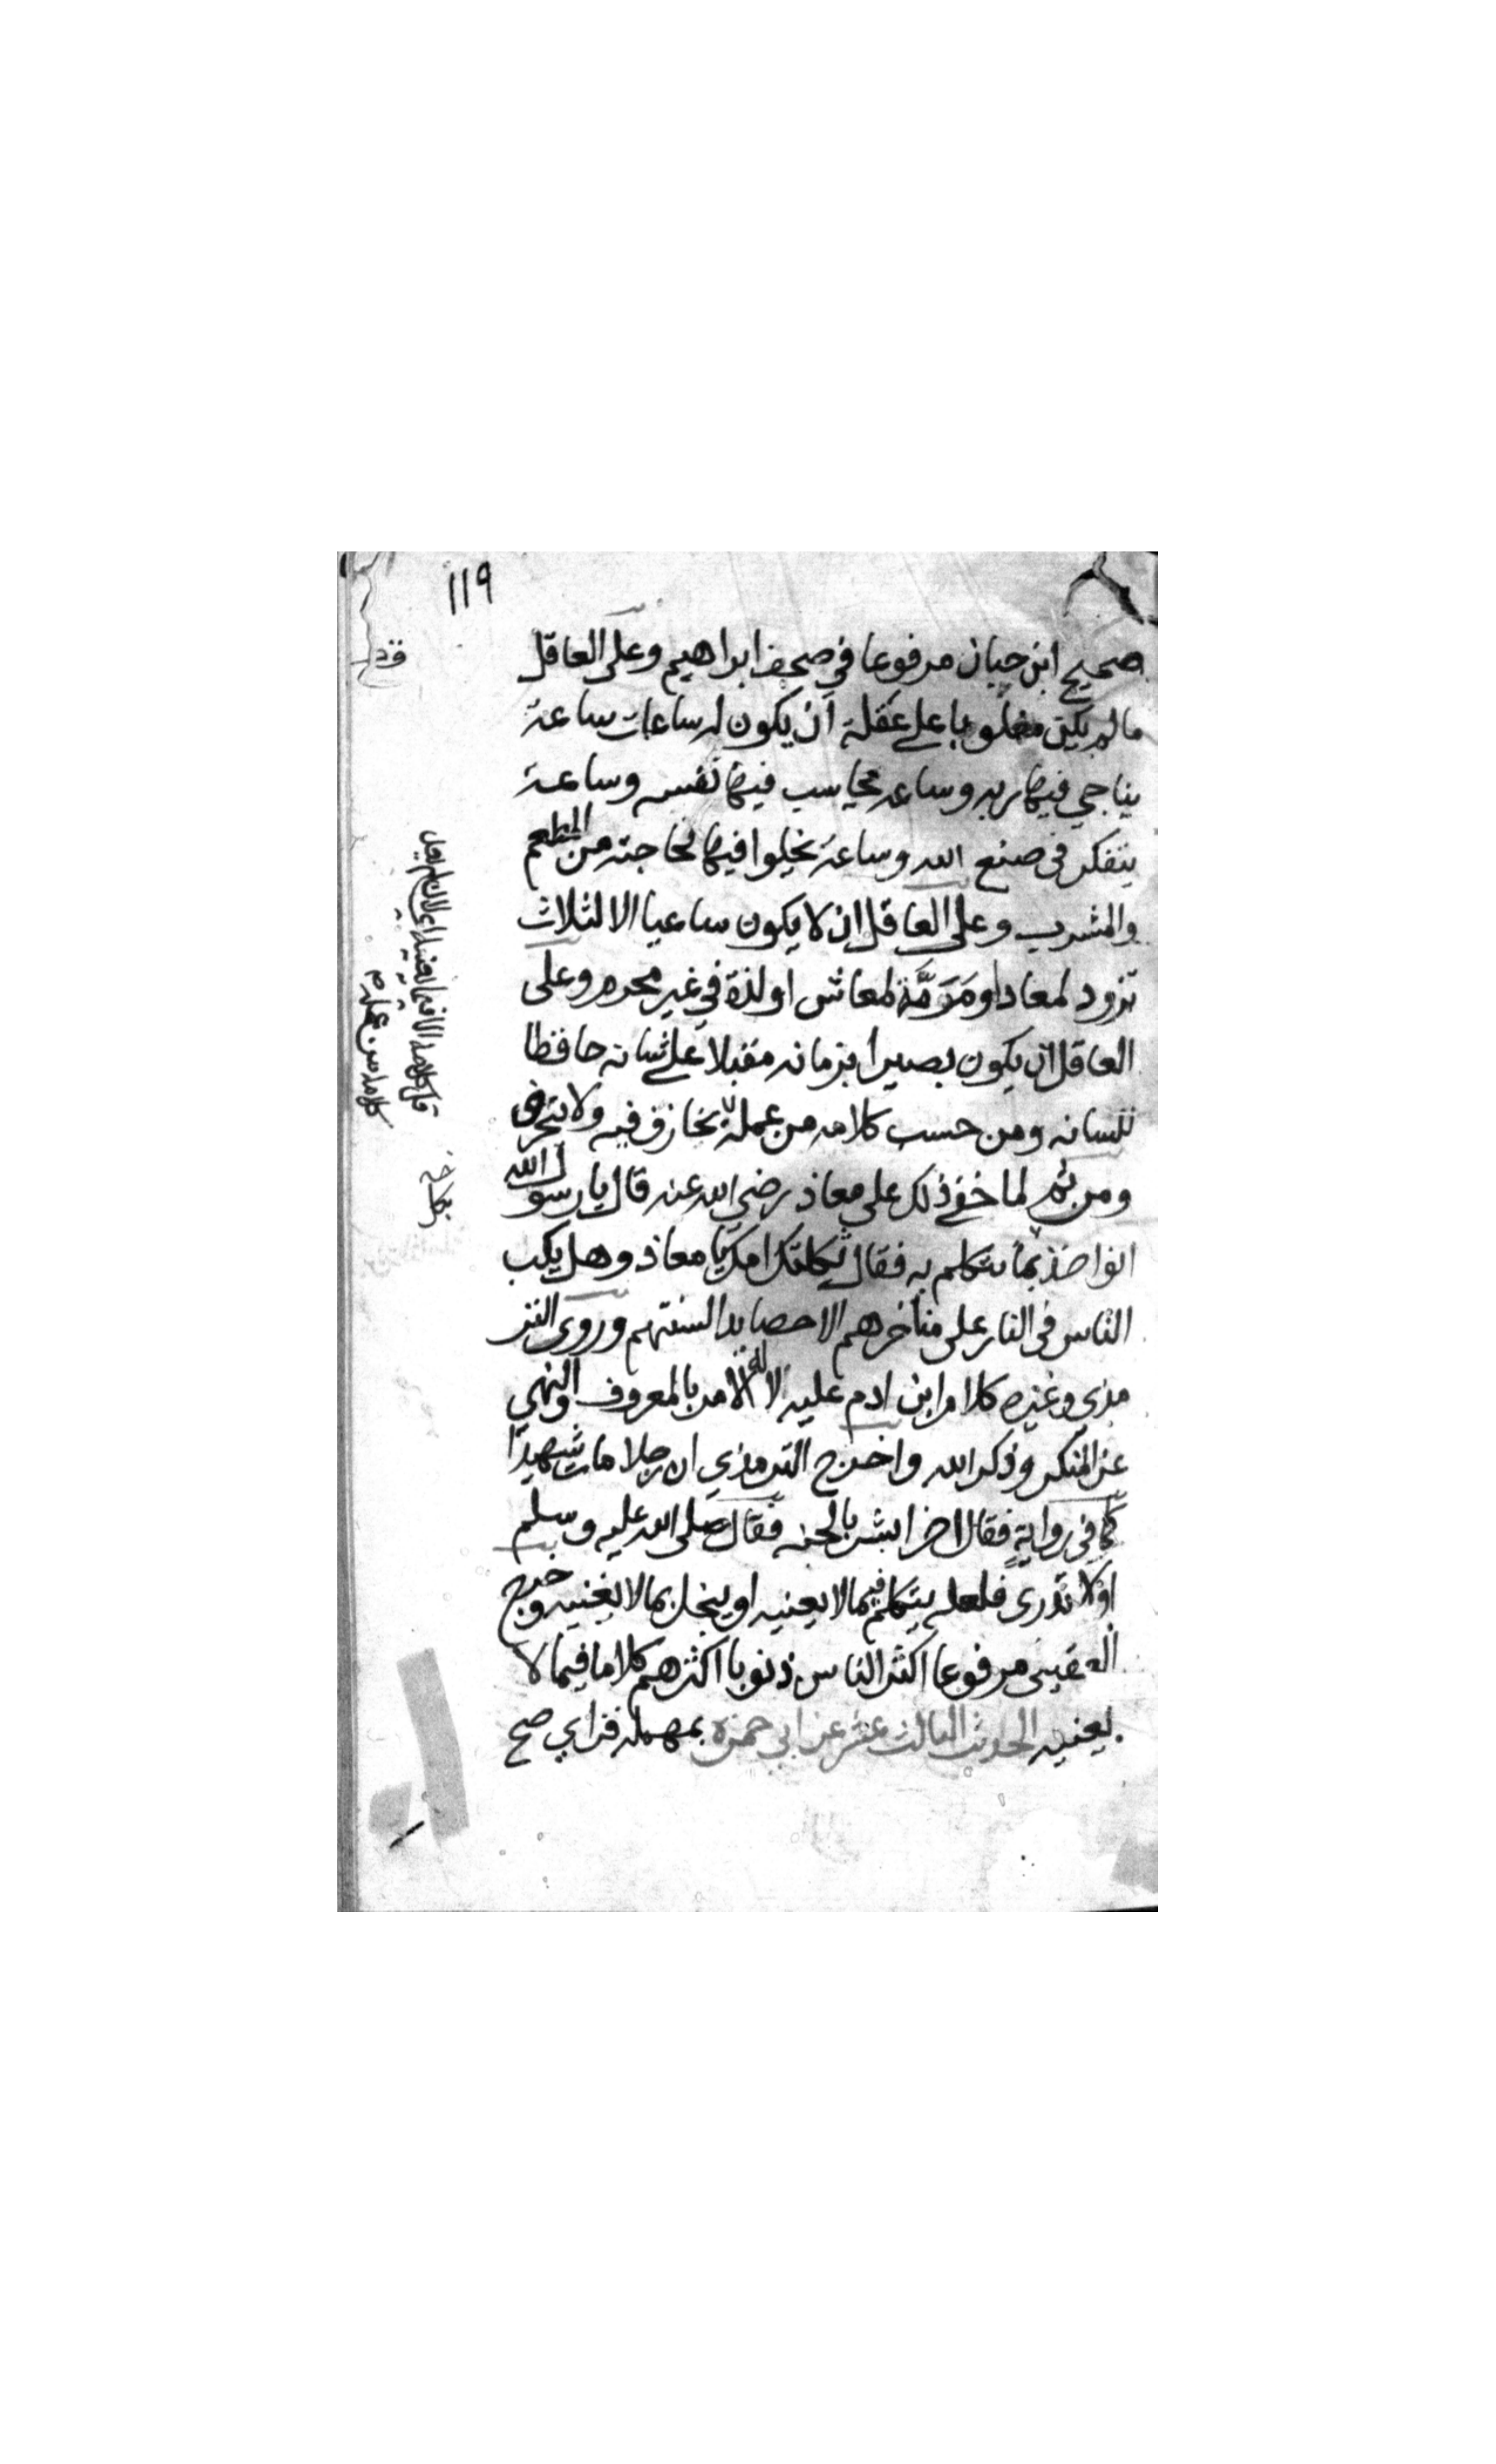 ١١٩
صحيح ابن حبان مرفوعا في صحف ابراهيم وعلى العاقل
مالم يكن مغلوبا على عقله ان يكون له ساعات ساعة
يناجي فيها ربه وساعة يحاسب فيها نفسه وساعة
يتفكر في صنع الله وساعة يخلوا فيها لحاجته من المطعم
والمشرب وعلى العاقل ان لا يكون ساعيا الا لثلاث
تزود لمعاد او مَرَمَّة لمعاش او لذة في غير محرم وعلى
العاقل ان يكون بصيرا بزمانه مقبلا على شانه حافظا
للسانه ومن حسب كلامه من عمله يجازف فيه ولا يتحرى
ومن ثم لما خفي ذلك على معاذ رضي الله عنه قال يا رسول الله
انواخذ بما نتكلم به فقال ثكلتك امك يا معاذ وهل يكب
الناس في النار على مناخرهم الا حصايد السنتهم وروى التر
مذي وغيره كلام ابن ادم عليه لا له الا الامر بالمعروف والنهي
عن المنكر وذكر الله واخرج الترمذي ان رجلا مات شهيدًا
كما في رواية فقال اخر ابشر بالجنه فقال صلى الله عليه وسلم
اولا تدري فلعله يتكلم فيما لا يعنيه او يبخل بما لا يغنيه وخرج
العقيلى مرفوعا اكثر الناس ذنوبا اكثرهم كلاما فيما لا
يعنيه الحديث الثالث عشر عن ابي حمزه بمهملة فزاي صح
قل كلامه الا فيما يعنيه
كلامه من عمله